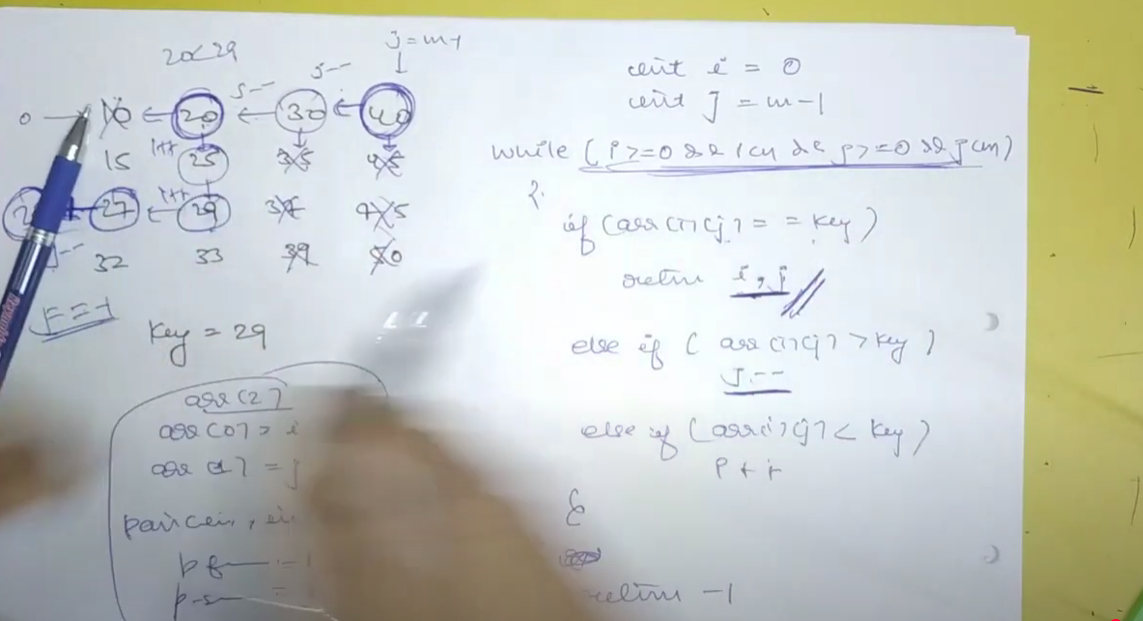 20<29
j=m-1
j--
j--
0 10 20 30 40
i++
15 25 35 45
i++
27 29 45
j--
32 33 39 50
Key = 29
arr[2]
arr[0] = i
arr[1] = j
int i = 0
int j = m-1
while (i>=0 && i<n && j>=0 && j<m)
{
if (arr[i][j] == key)
return i, j
else if ( arr[i][j] > key )
j--
else if (arr[i][j] < key)
i++
}
return -1